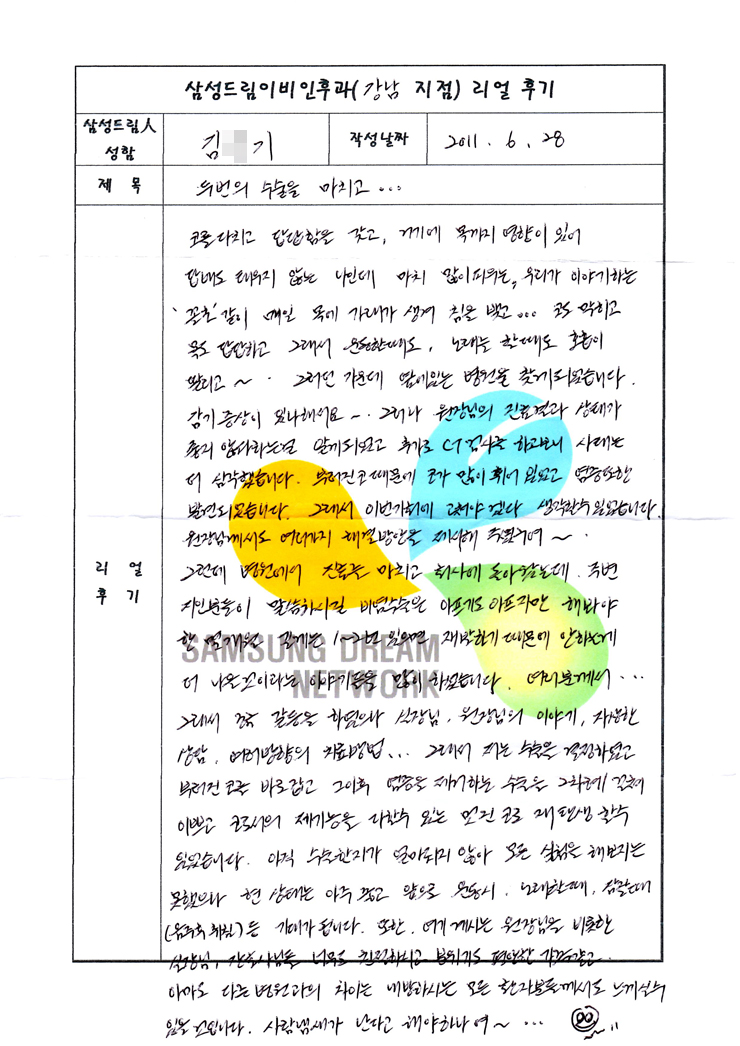 삼성드림이비인후과(강남 지점) 리얼 후기
삼성드림人 성함
김 기
작성날짜
2011. 6. 28
제 목
두번의 수술을 마치고...
리 얼 후 기
코를 다치고 답답함을 갖고, 거기에 목까지 영향이 있어
담배도 태우지 않는 나인데 마치 많이 피우는, 우리가 이야기하는
'꼴초' 같이 매일 목에 가래가 생겨 침을 뱉고... 코도 막히고
목도 답답하고 그래서 운동할때도, 노래를 할때도 호흡이
딸리고~. 그러던 가운데 옆에있는 병원을 찾게되었습니다.
감기증상이 있나해서요~. 그러나 원장님의 진료결과 상태가
좋지 않다하는걸 알게되었고 추가로 CT검사를 하고보니 사태는
더 심각했습니다. 부러진코때문에 코가 많이 휘어 있었고 염증또한
발견되었습니다. 그래서 이번기회에 고쳐야 겠다 생각할수있었습니다.
원장님께서도 여러가지 해결방안을 제시해 주셨구여~.
그런데 병원에서 진료를 마치고 회사에 돌아왔는데. 주변
지인분들이 말씀하시길 비염수술은 아프기도 아프지만 해봐야
몇개월 길게는 1~2년 있으면 재발하기 때문에 안하는게
더 나을것이라는 이야기들을 많이 하셨습니다. 여러분께서...
그래서 갈등을 하였으나 실장님, 원장님의 이야기, 자세한
상담, 여러방향의 치료방법... 그래서 저는 수술을 결정하였고
부러진 코를 바로잡고 그이후 염증을 제거하는 수술을 2차례에 걸쳐
이쁘고 코로서의 제기능을 다할수 있는 멋진 코로 재탄생 할수
있었습니다. 아직 수술한지가 얼마되지 않아 모든 실험을 해보지는
못했으나 현 상태는 아주 좋고 앞으로 운동시, 노래할때, 잠잘때
(음주후 취침)등 기대가 됩니다. 또한, 여기 계시는 원장님을 비롯한
실장님, 간호사님들 너무도 친절하시고 분위기도 편안한 가족같고.
아마도 다른병원과의 차이는 내방하시는 모든 환자분들께서도 느끼실수
있을것입니다. 사람냄새가 난다고 해야하나여~...
SAMSUNG DREAM
NETWORK